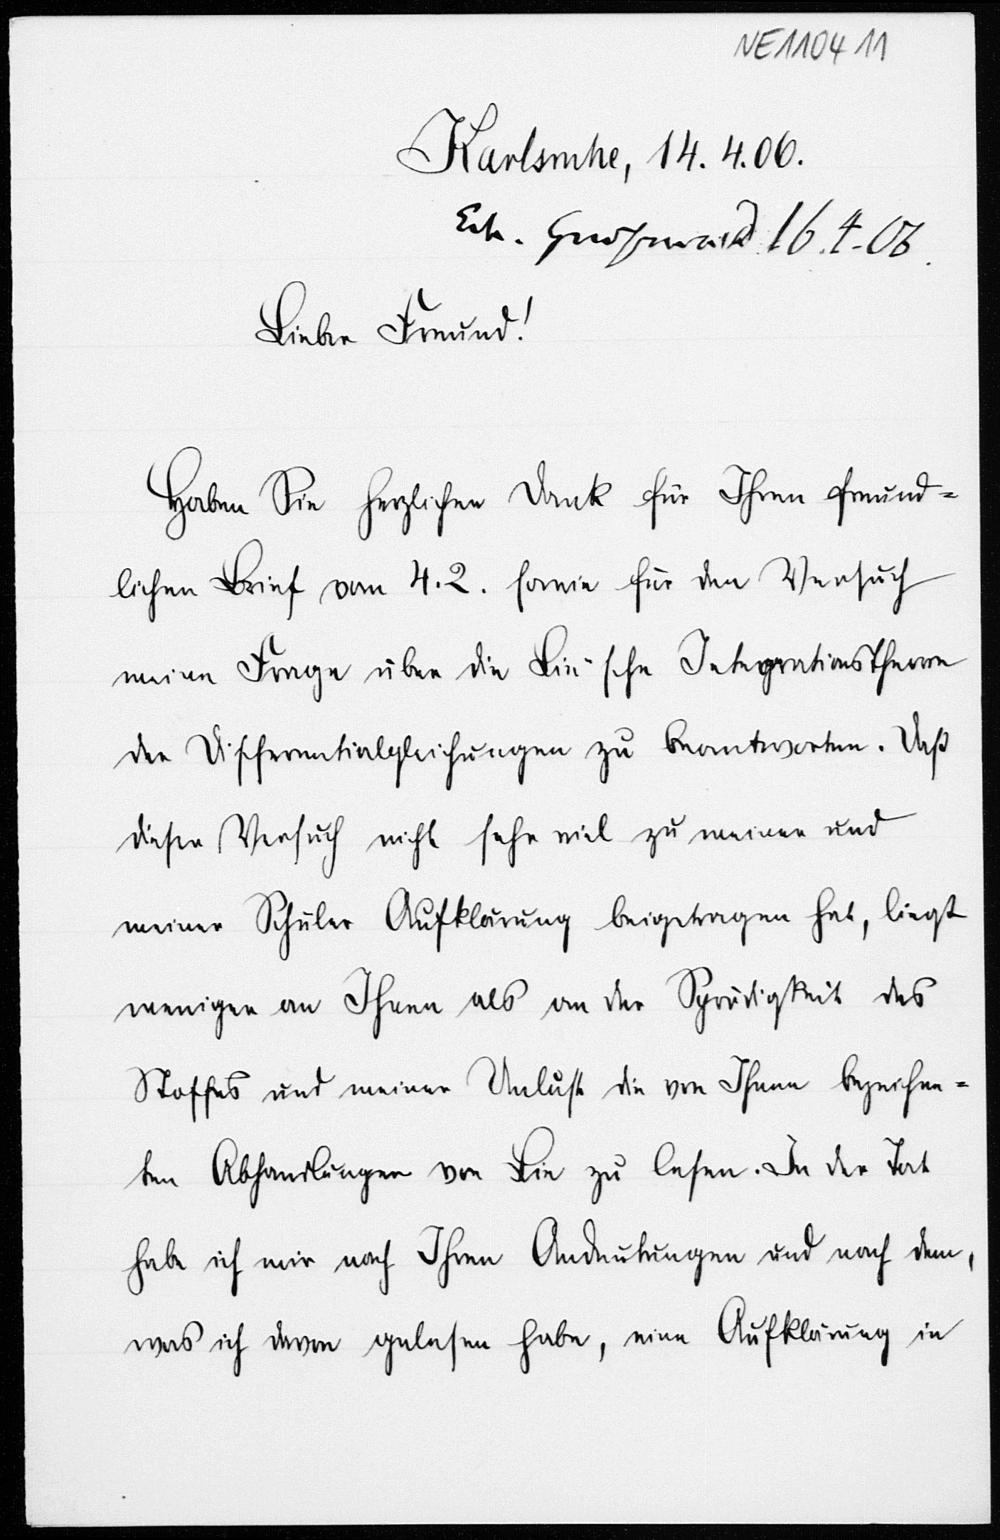 NE110411
Karlsruhe, 14. 4. 06.
Erh. 16.4.06.
Lieber Freund!
Haben Sie herzlichen Dank für Ihren freund=
lichen Brief vom 4.2. sowie für den Versuch
meine Frage über die Lie'sche Integrationstheorie
der Differentialgleichungen zu beantworten. Daß
dieser Versuch nicht sehr viel zu meiner und
meiner Schüler Aufklärung beigetragen hat, liegt
weniger an Ihnen als an der Sprödigkeit des
Stoffes und meiner Unlust die von Ihnen bezeichne=
ten Abhandlungen von Lie zu lesen. In der Tat
habe ich mir nach Ihren Andeutungen und nach dem,
was ich davon gelesen habe, eine Aufklärung in